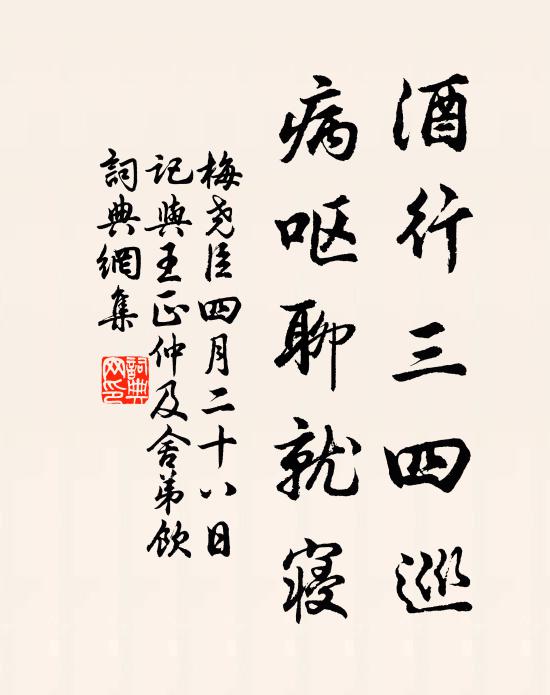 酒行三四巡
病呕聊就寝
梅尧臣四月二十八日
记與王正仲及舍弟飲
詞典網集
詞典網印